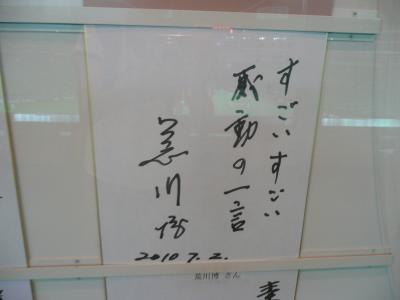 すごいすごい
感動の一言
荒川博
2010 7. 2.
荒川博 さん